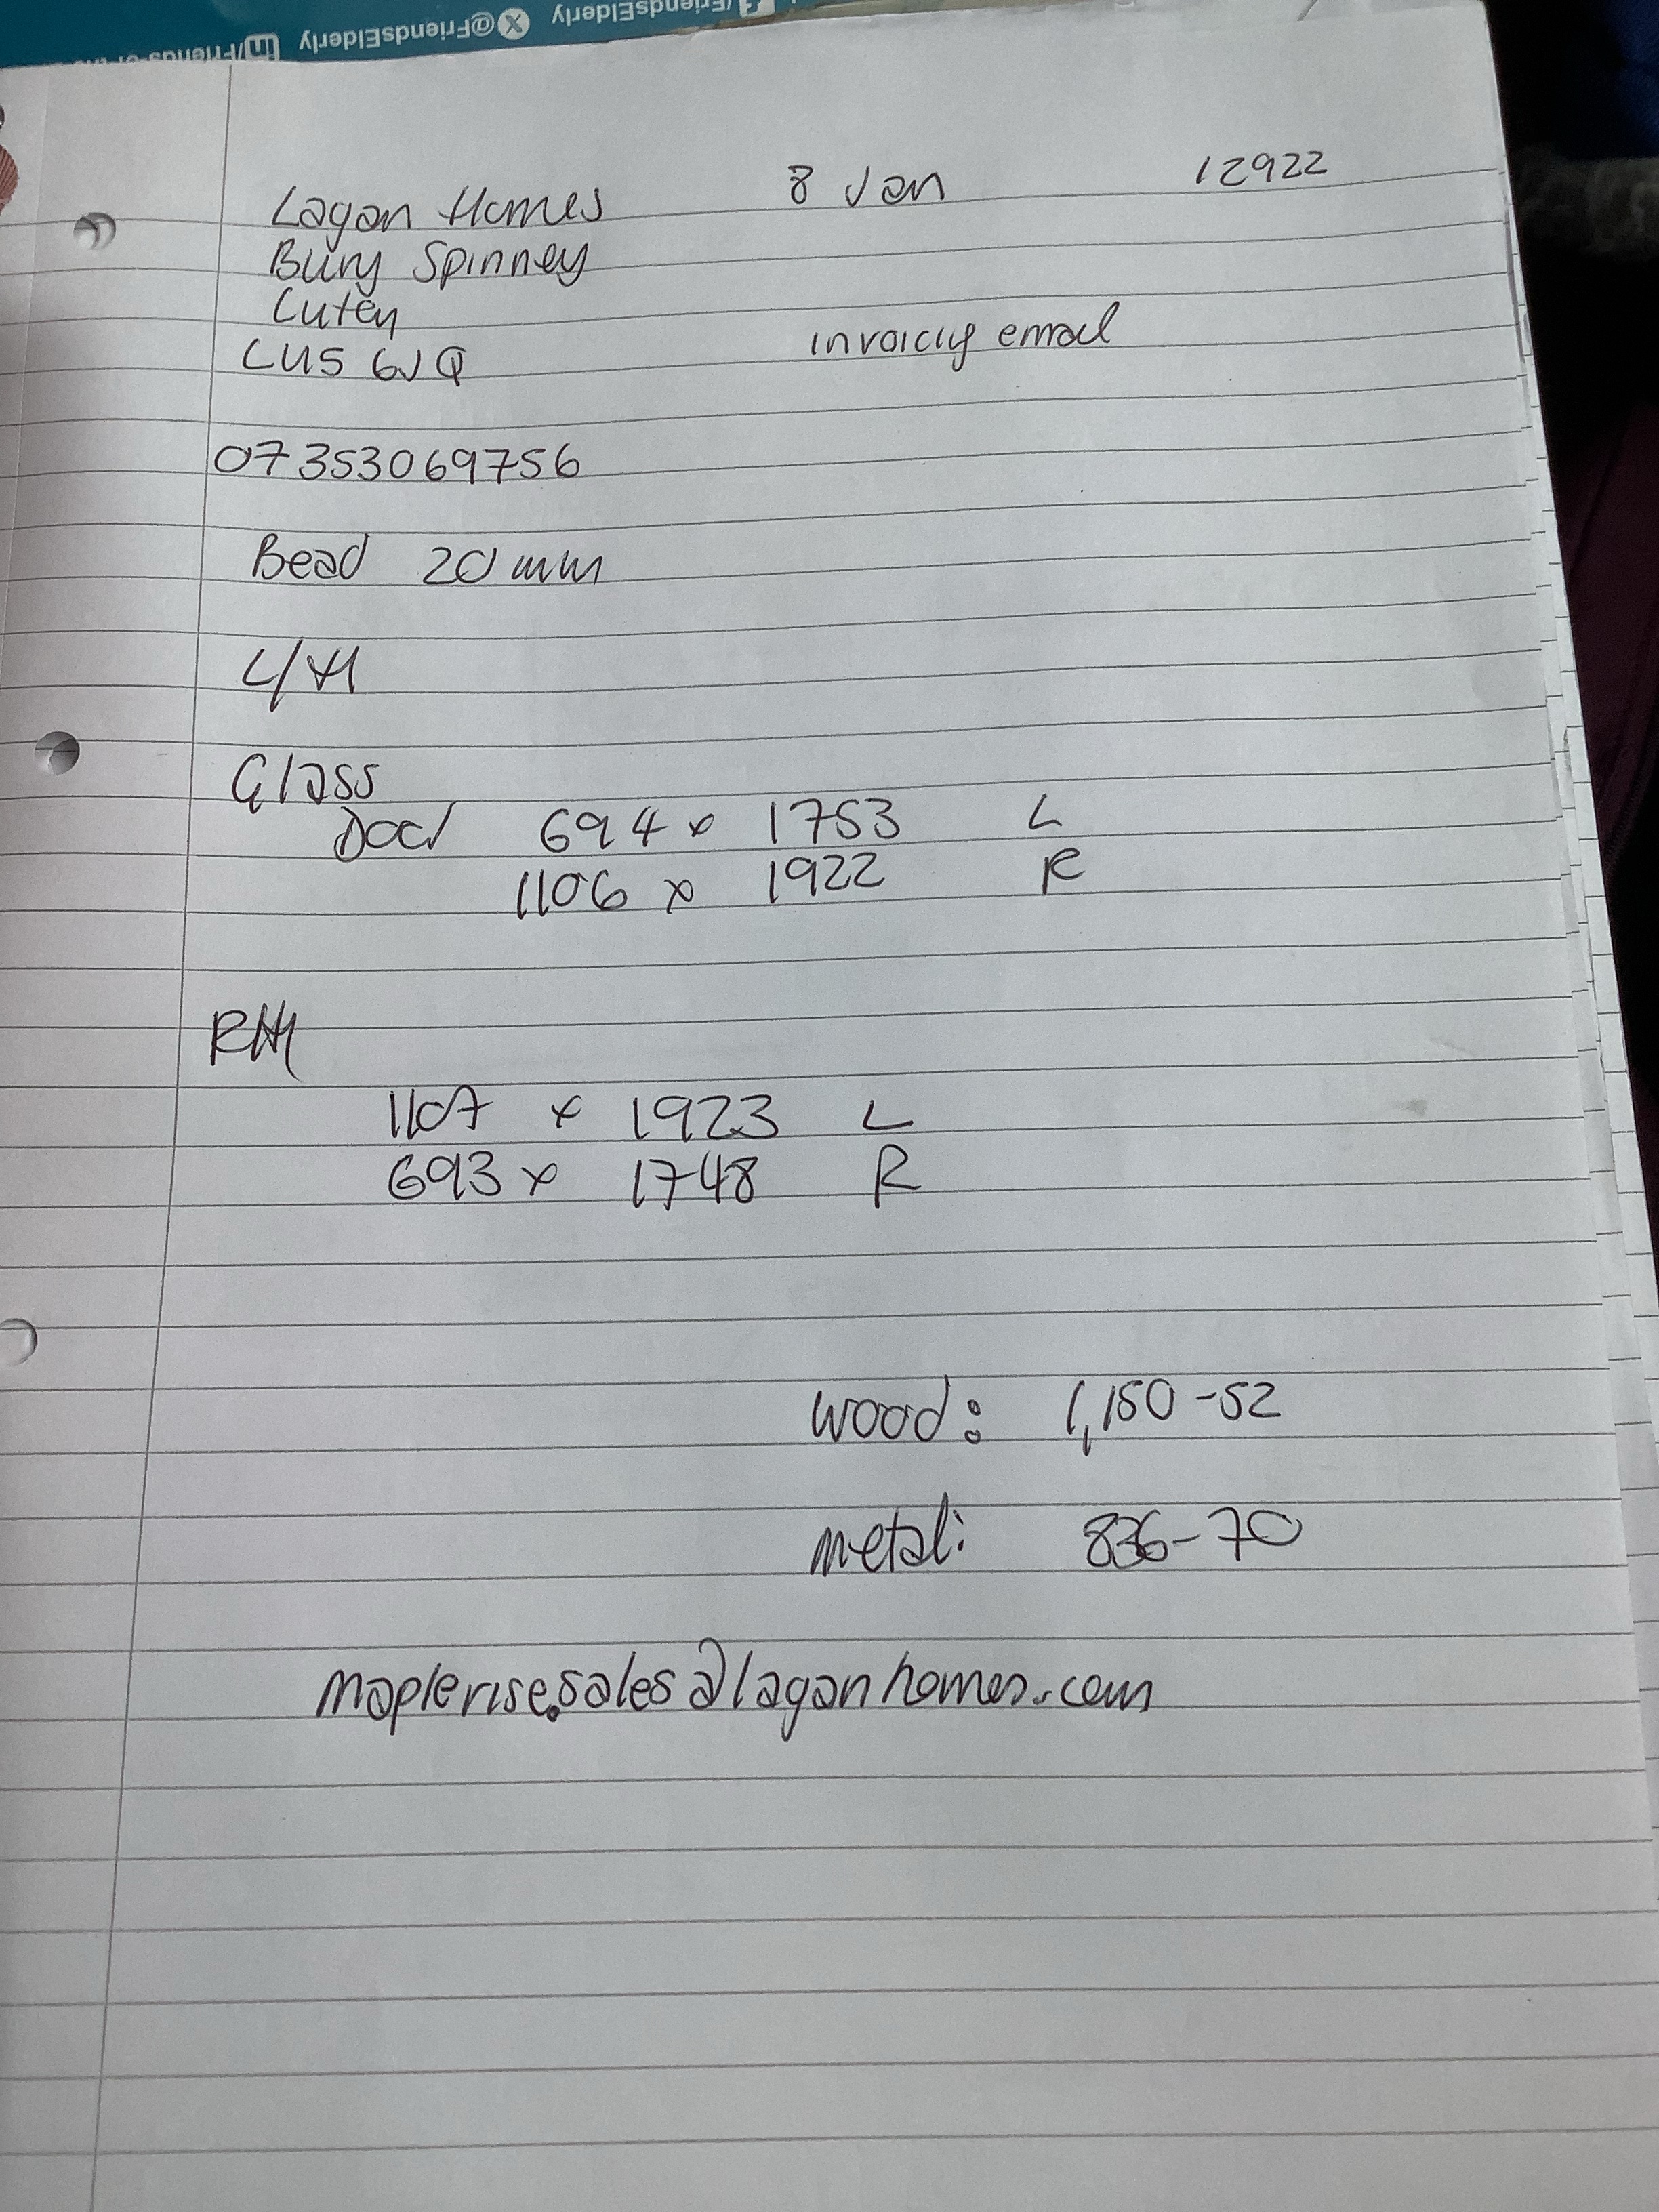 /Friends of the
@FriendsElderly
/FriendsElderly
Lagan Homes 8 Jan 12922
Bury Spinney
Luton
invoicing email
LU5 6JQ
07353069756
Bead 20mm
L/H
Glass
Door 694 x 1753 L
1106 x 1922 R
RH
1107 x 1923 L
693 x 1748 R
wood: 1,150-52
metal: 836-70
maplerise.sales@laganhomes.com